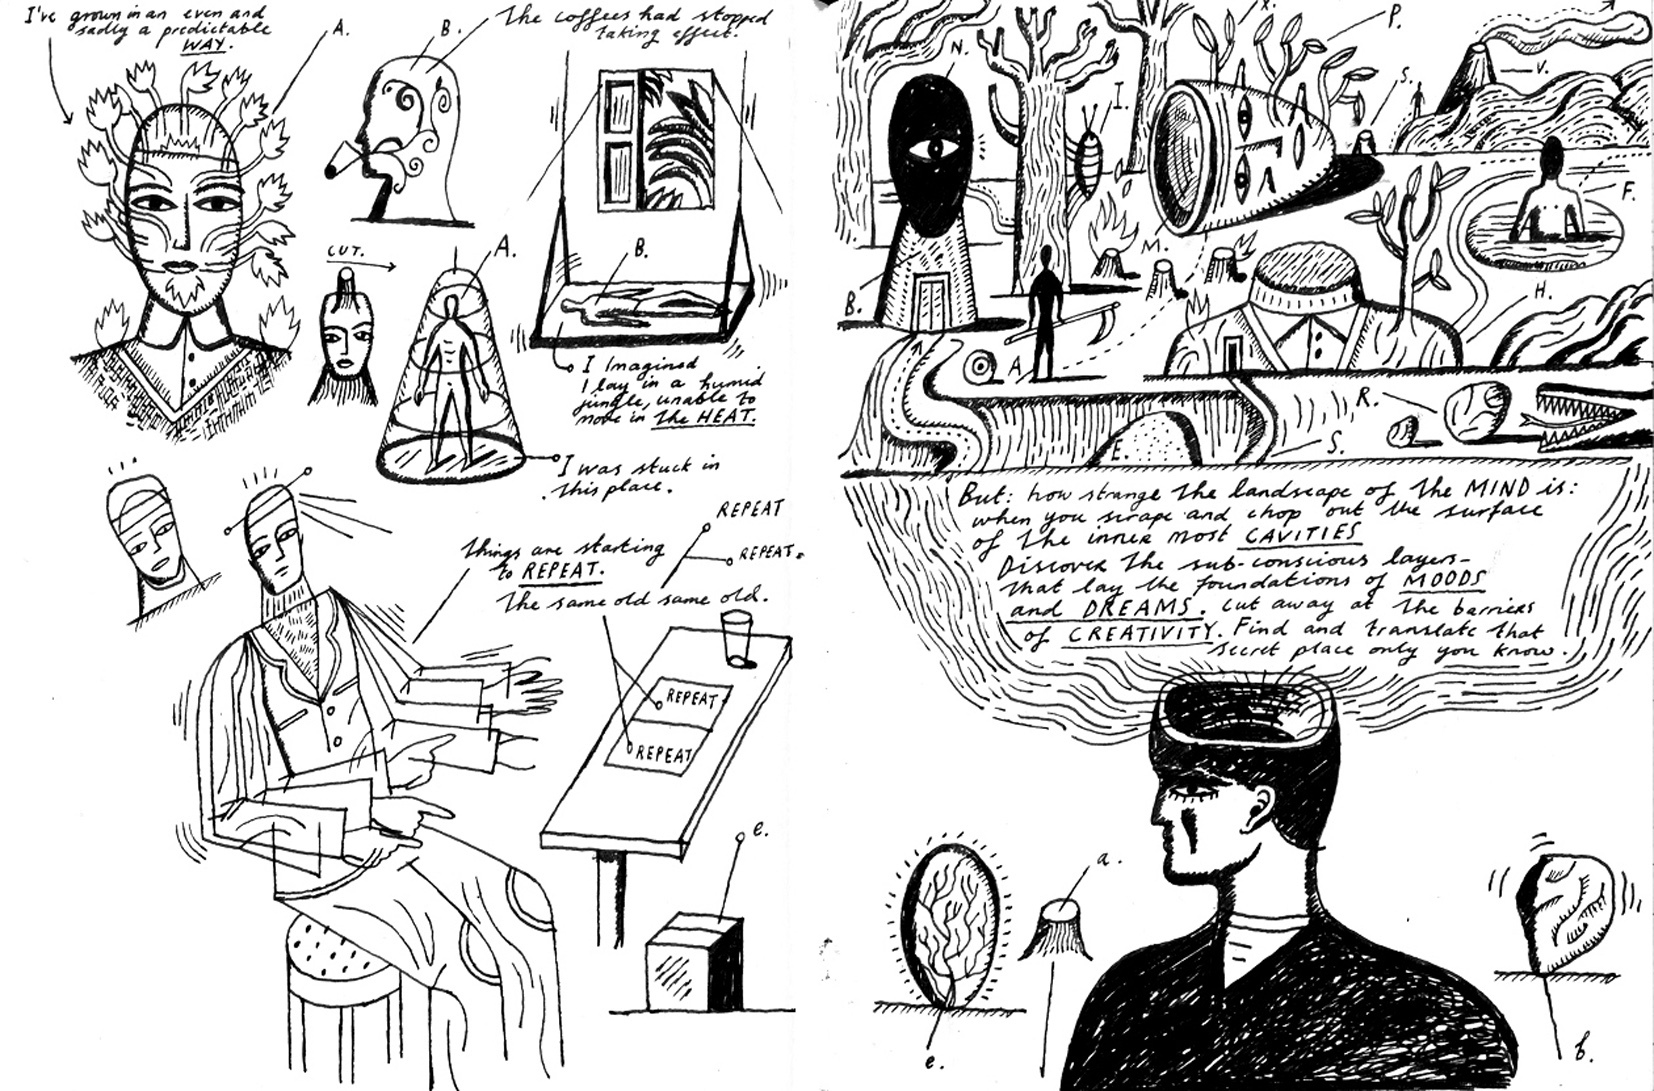 I've grown in an even and
sadly a predictable
WAY.
A.
B.
The coffees had stopped
taking effect.
CUT.
A.
B.
I Imagined
I lay in a humid
jungle, unable to
move in the HEAT.
I was stuck in
this place.
things are starting
to REPEAT.
The same old same old.
REPEAT
REPEAT.
REPEAT
REPEAT
e.
N.
I.
X.
P.
S.
V.
F.
M.
B.
A
H.
R.
E
S.
But: how strange the landscape of the MIND is:
when you scrape and chop out the surface
of the inner most CAVITIES
Discover the sub-conscious layers-
that lay the foundations of MOODS
and DREAMS. Cut away at the barriers
of CREATIVITY. Find and translate that
secret place only you know.
a.
e.
b.